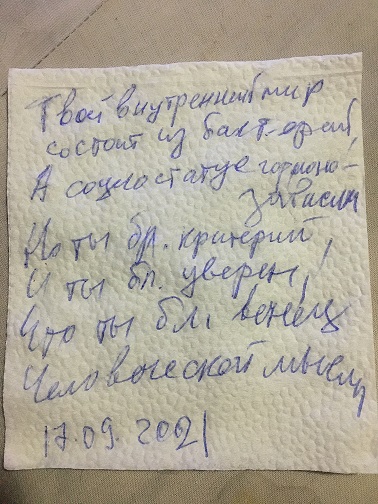 Твой внутренний мир
состоит из бакт-ерий,
А социостатус гормоно-
зависим
Но ты бл. критерий,
И ты бл. уверен,
Что ты бл. венец
Человеческой мысли
17.09.2021